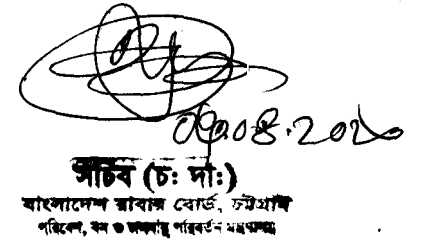 সচিব (চ: দা:)
বাংলাদেশ রাবার বোর্ড, চট্টগ্রাম
পরিবেশ, বন ও জলবায়ু পরিবর্তন মন্ত্রণালয়